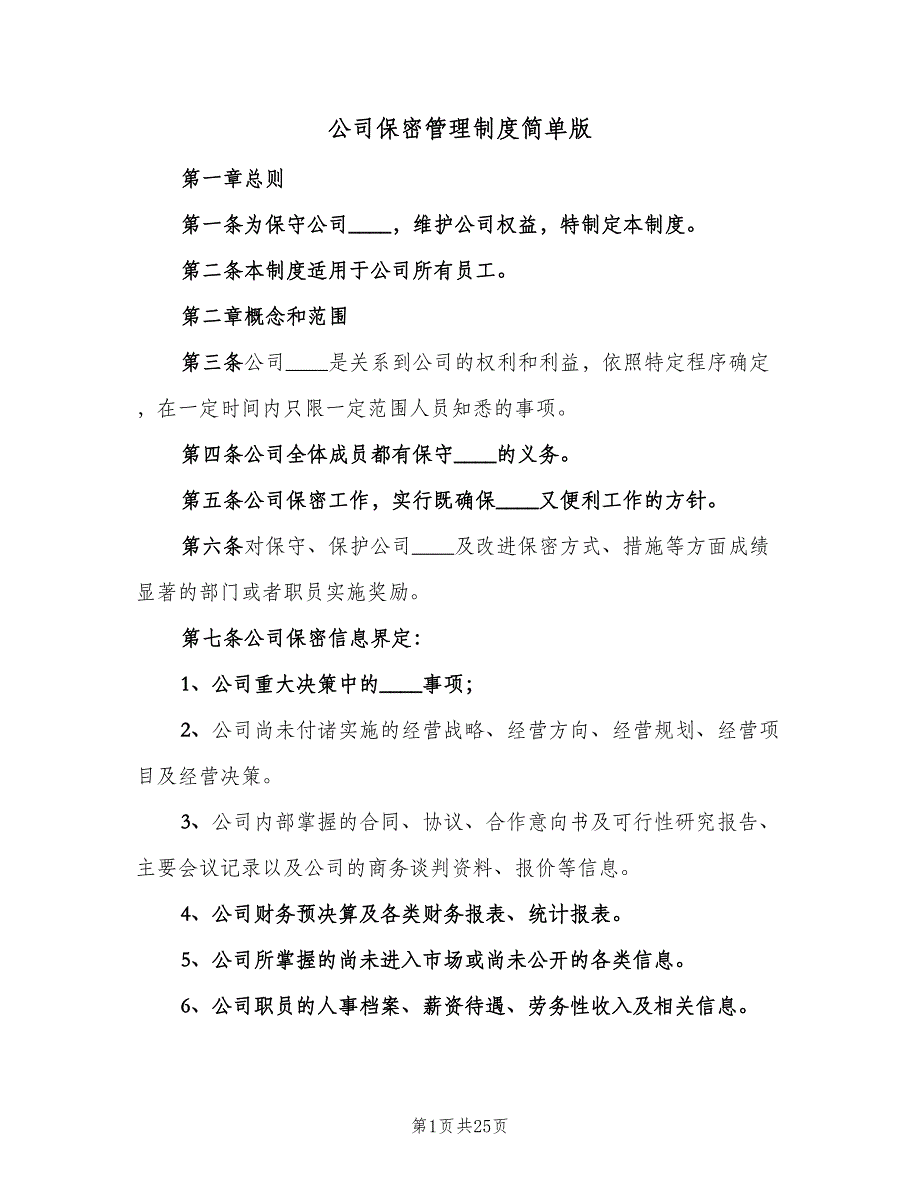 公司保密管理制度简单版
第一章总则
第一条为保守公司____，维护公司权益，特制定本制度。
第二条本制度适用于公司所有员工。
第二章概念和范围
第三条公司____是关系到公司的权利和利益，依照特定程序确定
，在一定时间内只限一定范围人员知悉的事项。
第四条公司全体成员都有保守____的义务。
第五条公司保密工作，实行既确保____又便利工作的方针。
第六条对保守、保护公司____及改进保密方式、措施等方面成绩
显著的部门或者职员实施奖励。
第七条公司保密信息界定：
1、公司重大决策中的____事项；
2、公司尚未付诸实施的经营战略、经营方向、经营规划、经营项
目及经营决策。
3、公司内部掌握的合同、协议、合作意向书及可行性研究报告、
主要会议记录以及公司的商务谈判资料、报价等信息。
4、公司财务预决算及各类财务报表、统计报表。
5、公司所掌握的尚未进入市场或尚未公开的各类信息。
6、公司职员的人事档案、薪资待遇、劳务性收入及相关信息。
第1页共25页